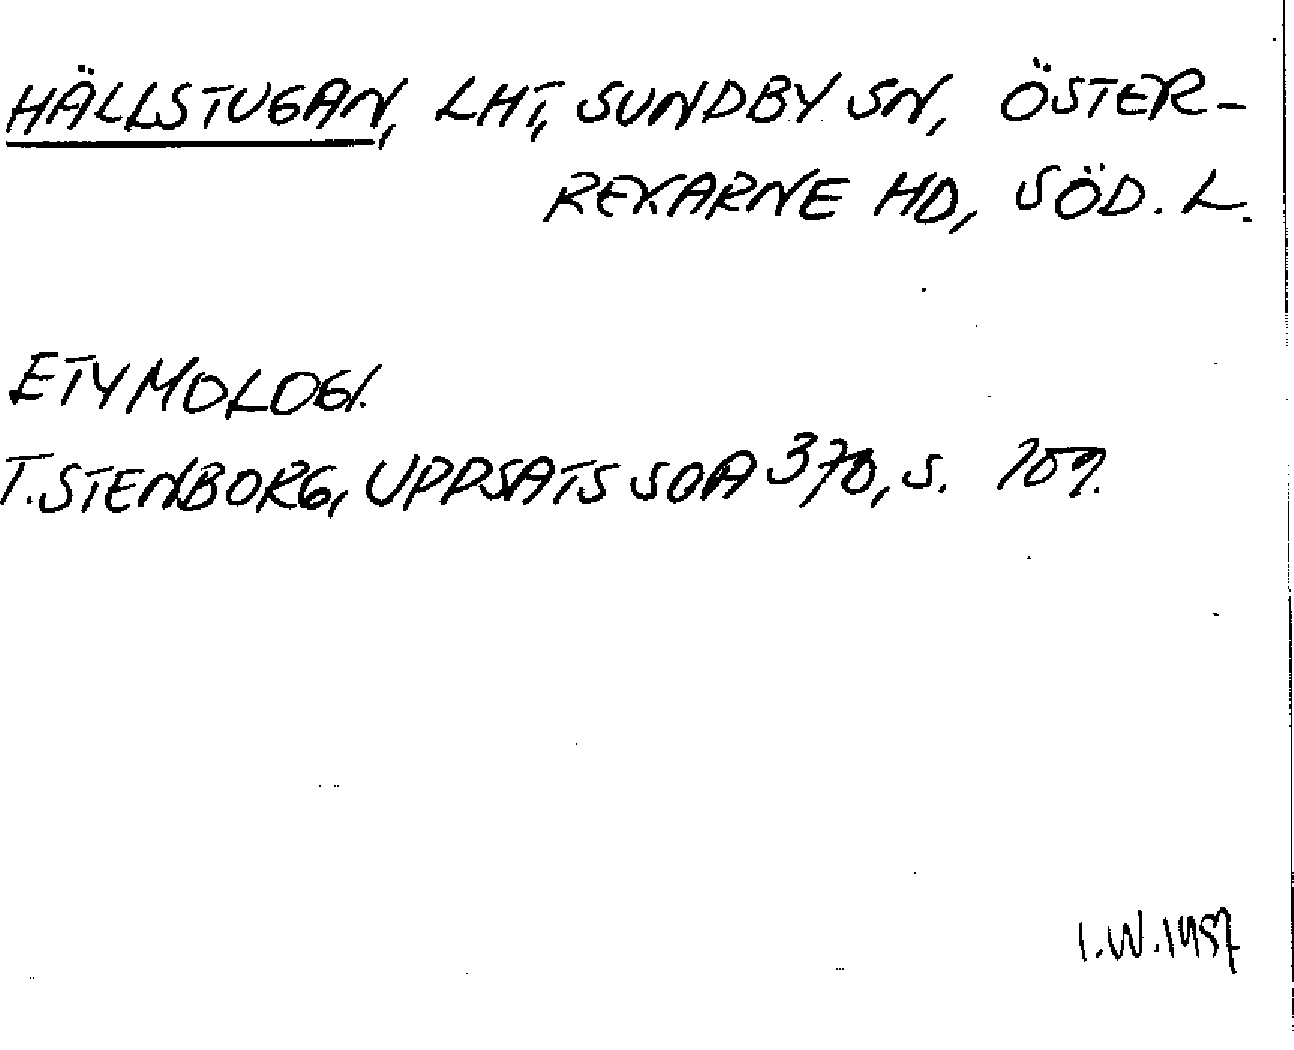 HÄLLSTUGAN, LHT, SUNDBY SN, ÖSTER-
REKARNE HD, SÖD. L.
ETYMOLOGI.
T. STENBORG, UPPSATS SOA 370, S. 109.
I.W. 1987